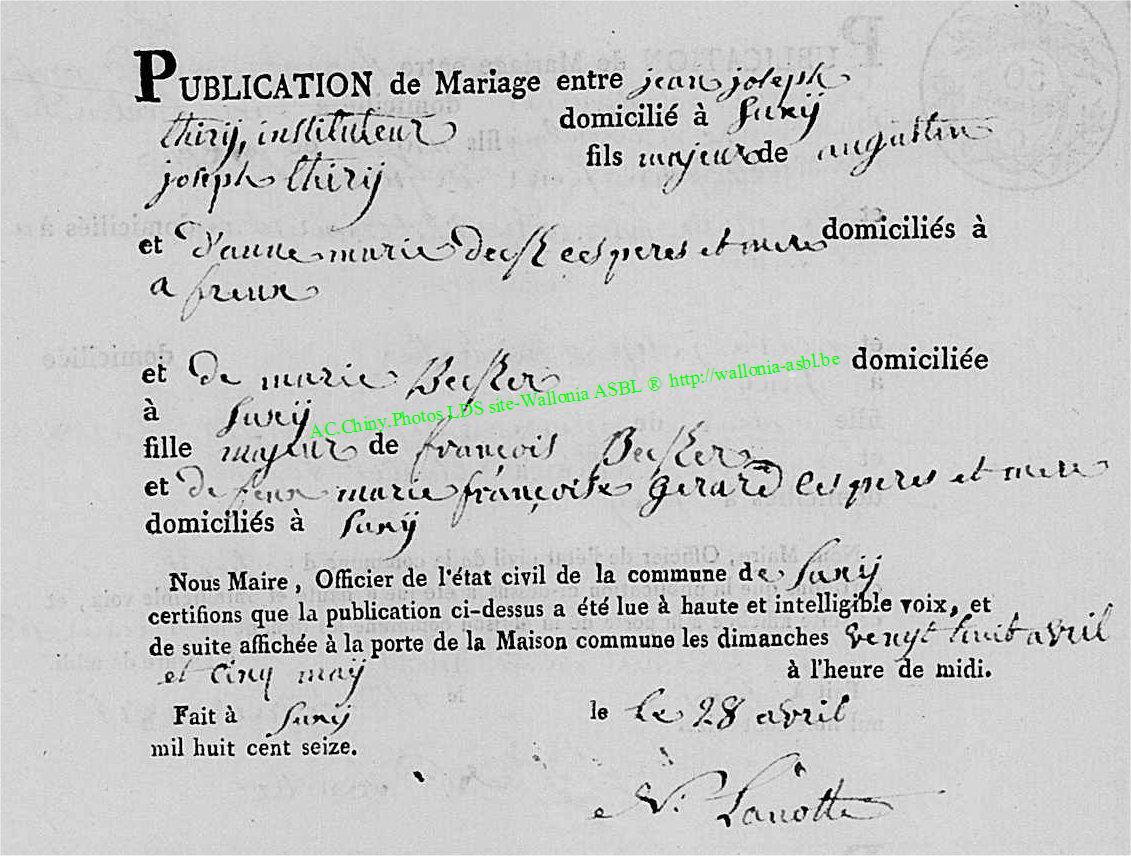 PUBLICATION de Mariage entre jean joseph
thirÿ, instituteur domicilié à Suxÿ
fils majeur de augustin
joseph thirÿ
et d'anne marie ces peres et mere domiciliés à
a freux
et De marie Becker domiciliée
à Suxÿ
AC.Chiny.Photos LDS site-Wallonia ASBL ® http://wallonia-asbl.be
fille majeur de françois Becker
et De feux marie françoise gerard ces peres et mere
domiciliés à Suxÿ
Nous Maire, Officier de l'état civil de la commune de Suxÿ
certifions que la publication ci-dessus a été lue à haute et intelligible voix, et
de suite affichée à la porte de la Maison commune les dimanches vengt huit avril
et cinq maÿ à l'heure de midi.
Fait à Suxÿ le Le 28 avril
mil huit cent seize.
Lanotte